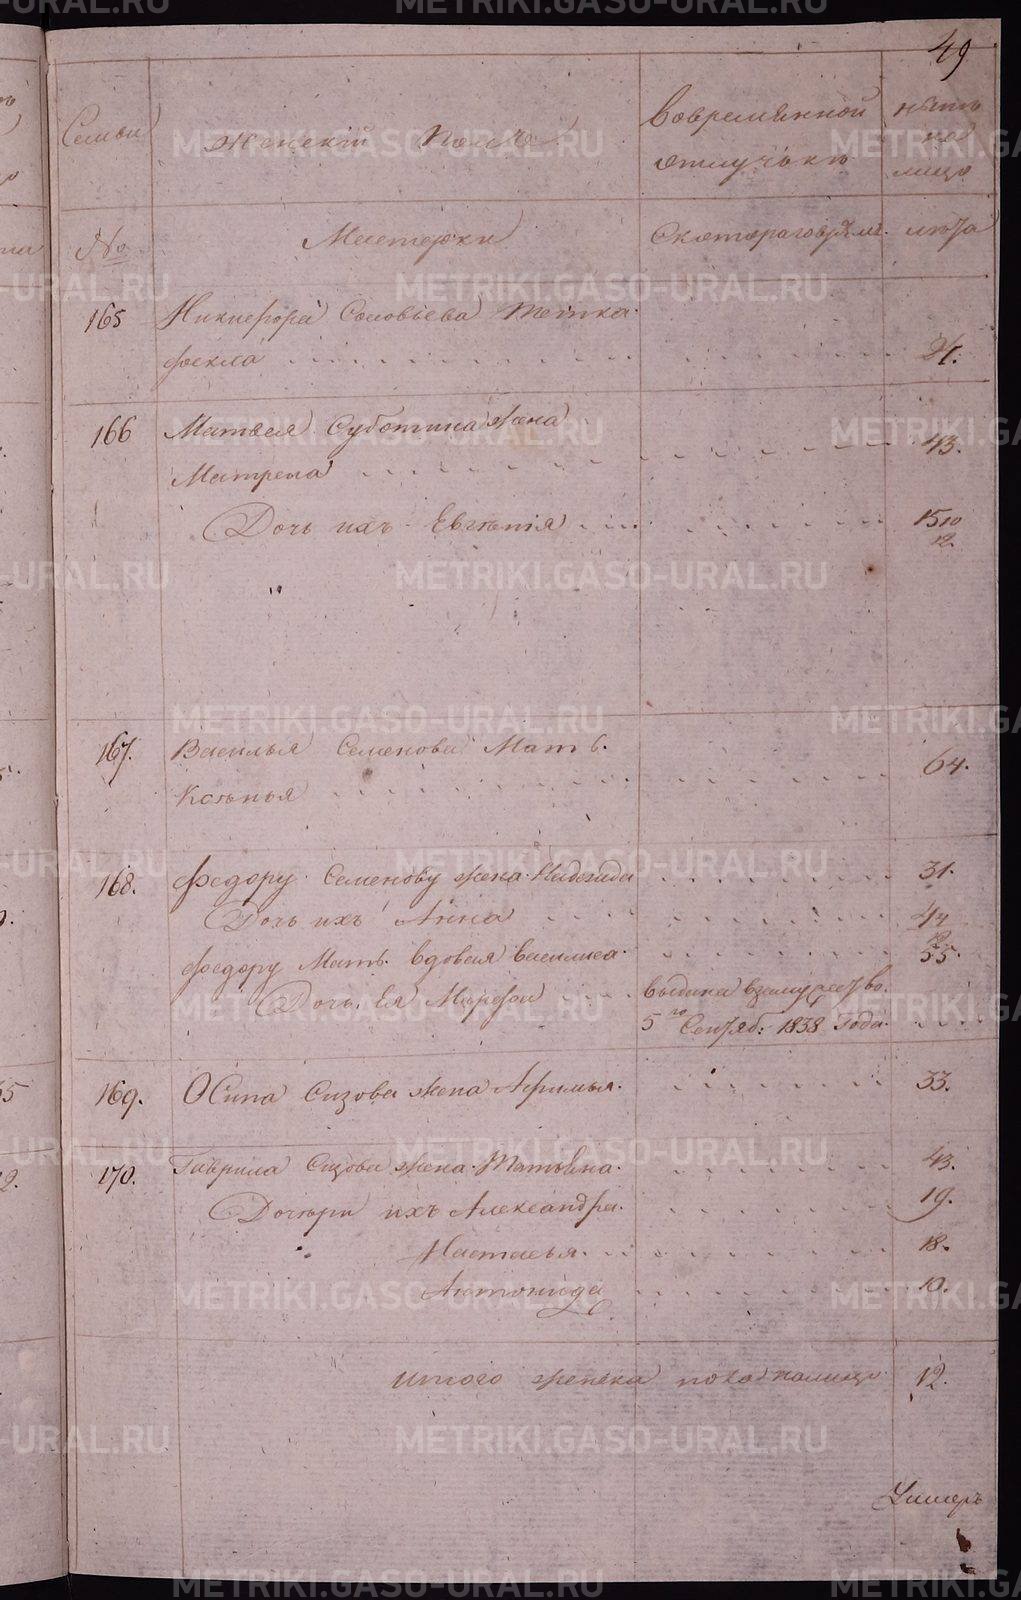 49
Семьи
Женскій Полъ
вовремянной
отлучькѣ
нынѣ
на
лицо
№
Мастерки
Скотораговремя.
лѣта
165
Никифора Соловьева Тетка
фекла
166
Матвея Суботина жена
Матрена
43.
Дочь ихъ Евгенія
15 10
12.
167.
Василья Семенова Мать.
Ксѣнья
64.
168.
Федору Семенову жена Надежда
31.
Дочь ихъ Анна
4
12
федору Мать вдовая василиса
55.
Дочь Ея Марфа
выдана взамужество.
5го Сентяб: 1838 года.
169.
Осипа Сизова жена Афимья.
33.
170.
Гаврила Сизова жена Татьяна.
43.
Дочери ихъ Александра.
19.
Настасья.
18.
Антонида
10.
итого женска пола налицо
12.
METRIKI.GASO-URAL.RU